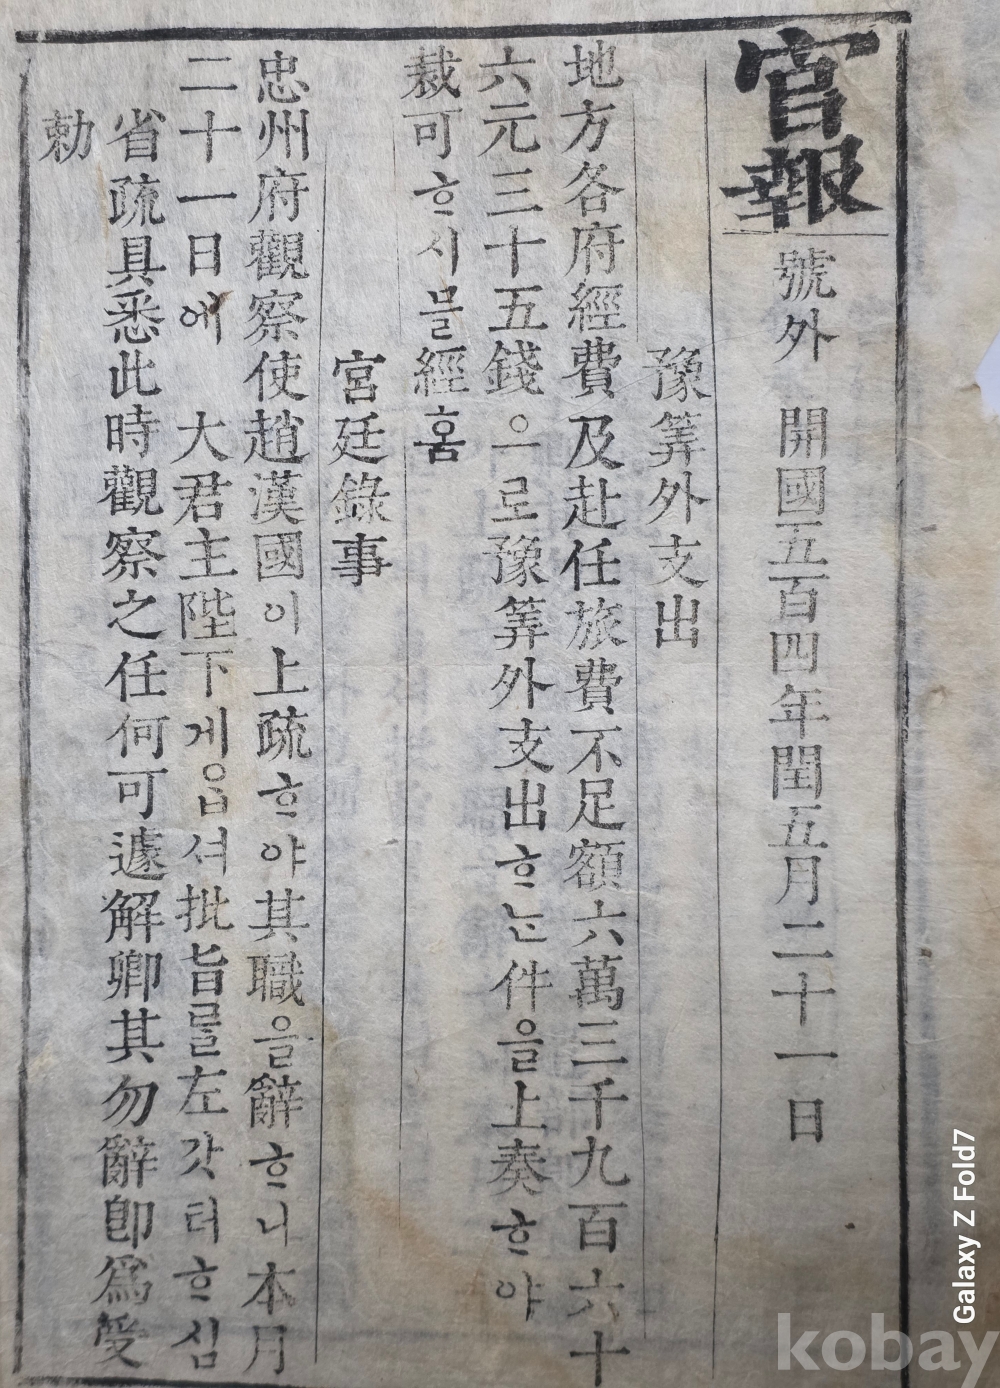 官報 號外 開國五百四年閏五月二十一日
豫筭外支出
地方各府經費及赴任旅費不足額六萬三千九百六十
六元三十五錢으로豫筭外支出ᄒᆞᄂᆞᆫ件을上奏ᄒᆞ야
裁可ᄒᆞ시믈經홈
宮廷錄事
忠州府觀察使趙漢國이上疏ᄒᆞ야其職을辭ᄒᆞ니本月
二十一日에 大君主陛下게읍셔批旨를左갓터ᄒᆞ심
省疏具悉此時觀察之任何可遽解卿其勿辭卽爲受
勅
Galaxy Z Fold7
kobay